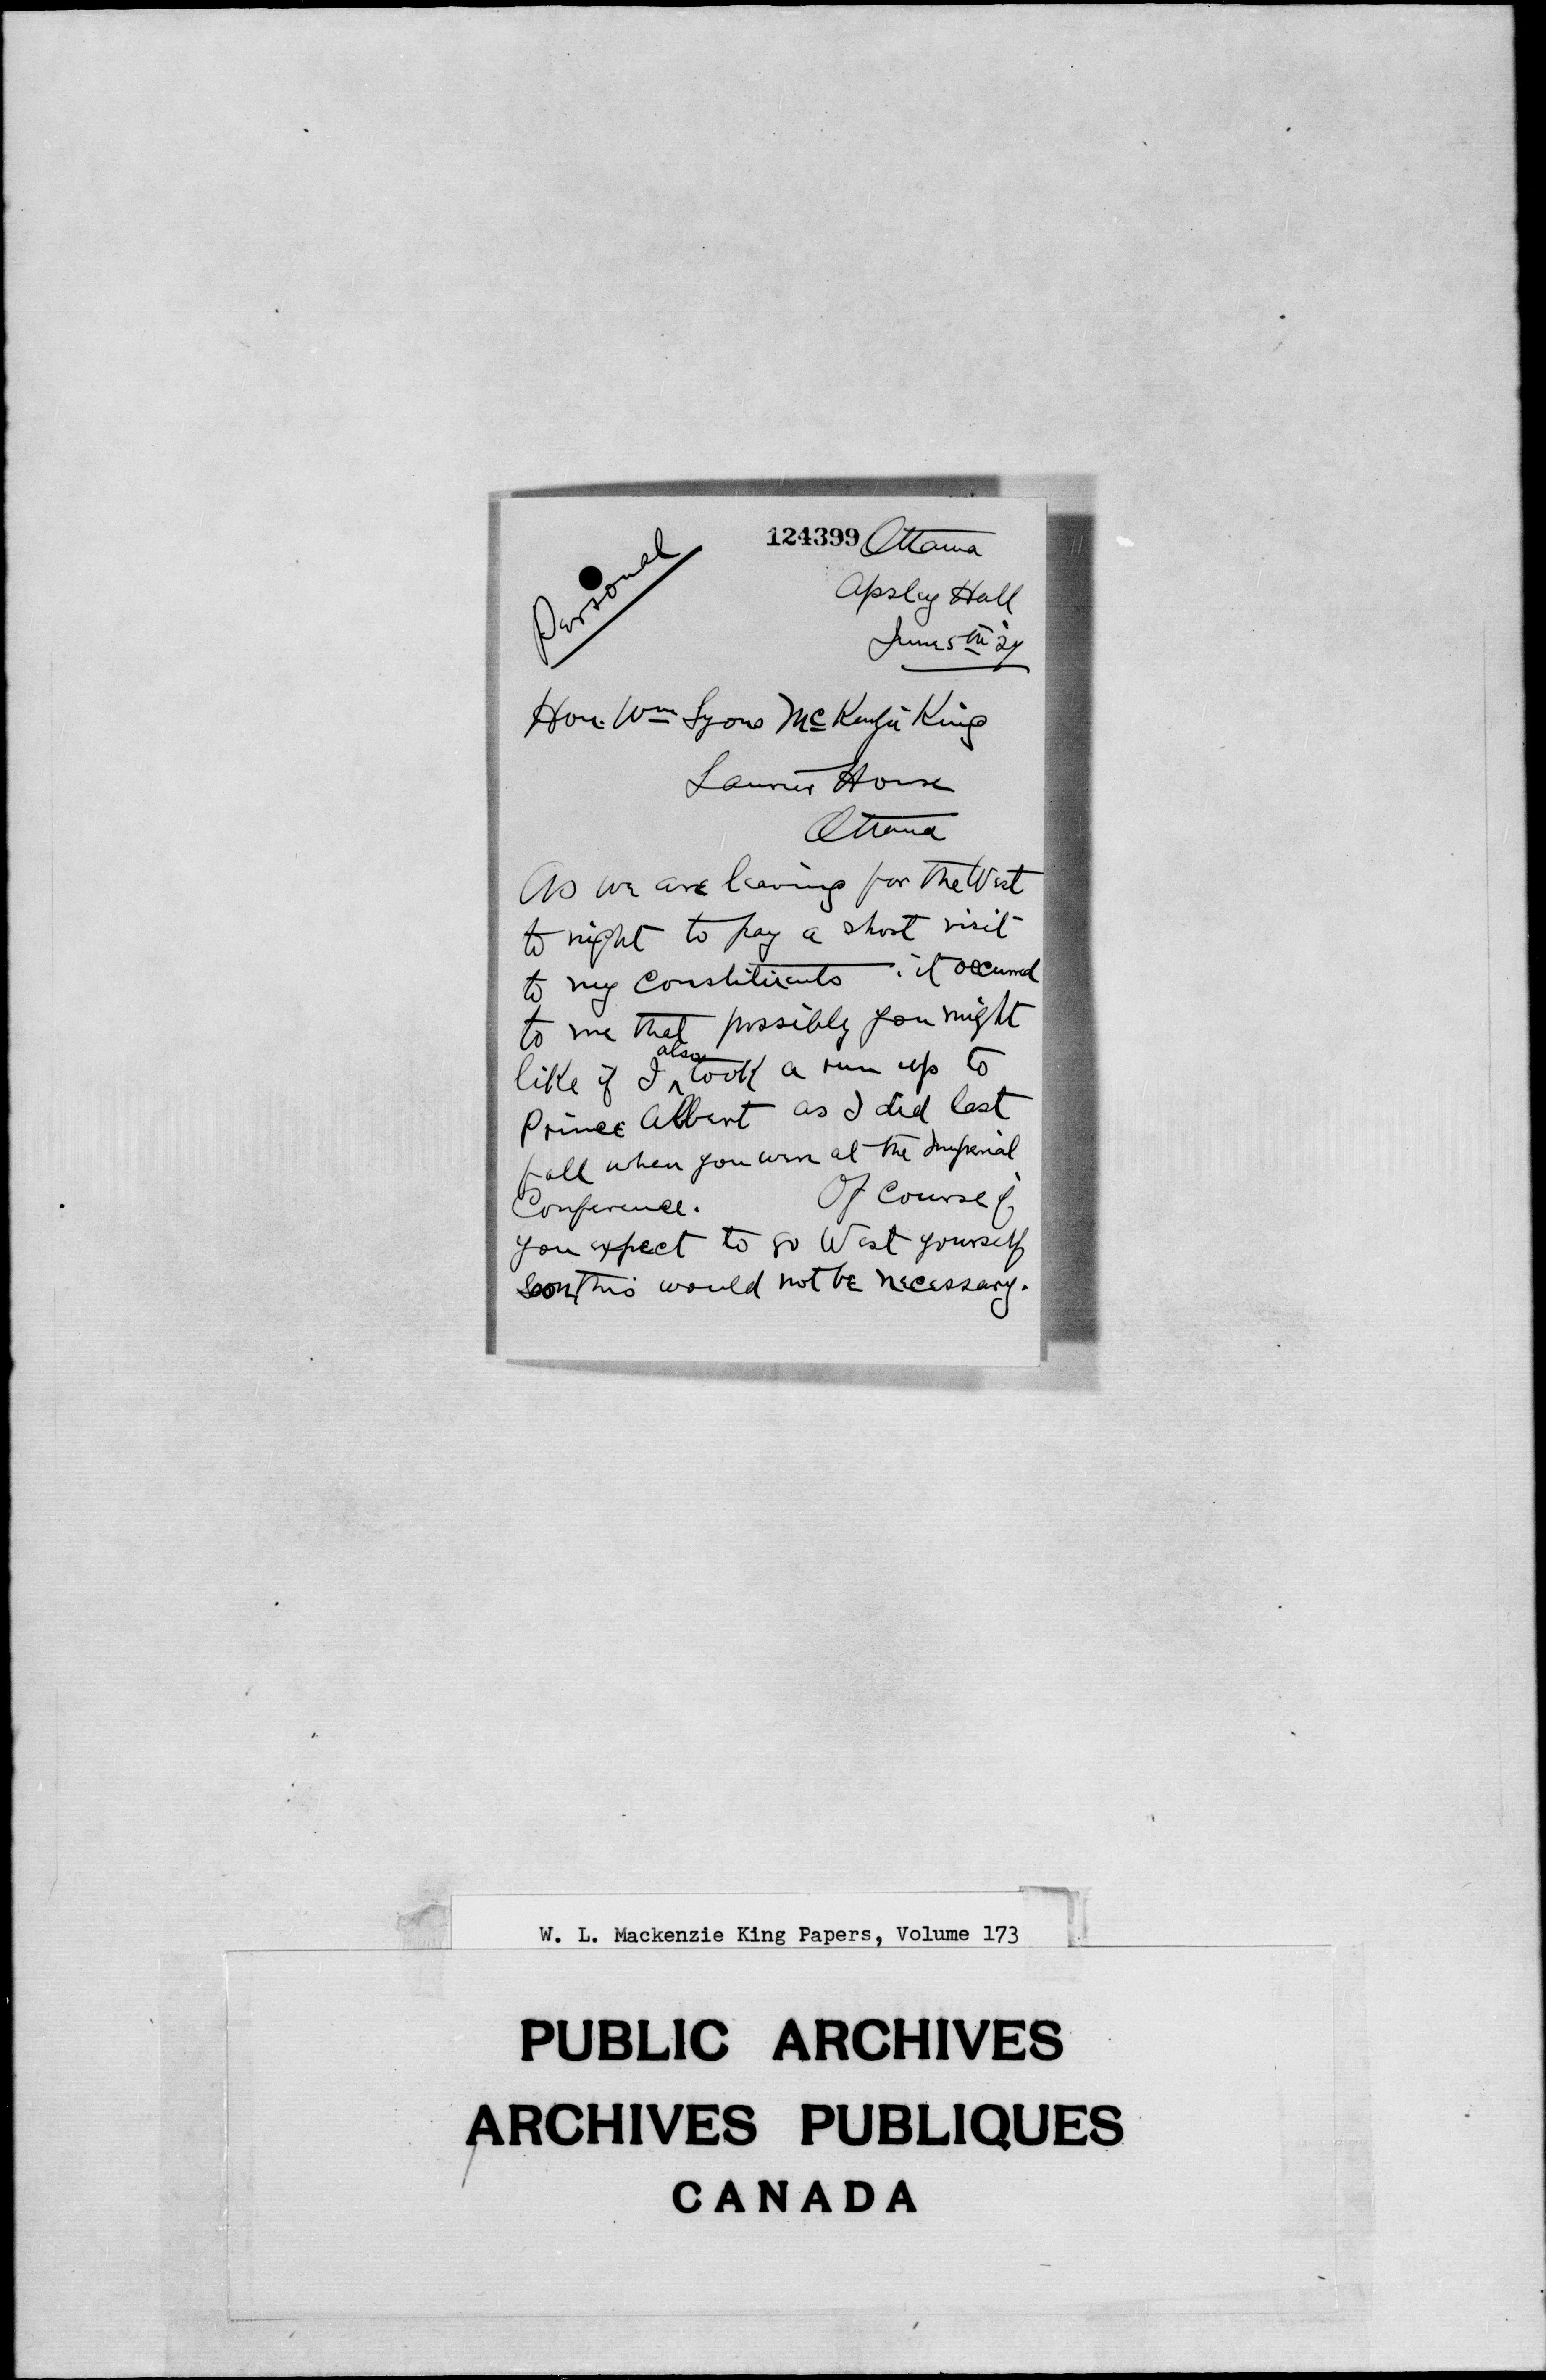 Personal
124399 Ottawa
Apsley Hall
June 5th '27
Hon. Wm Lyons McKenzie King
Laurier House
Ottawa
As we are leaving for the West
to night to pay a short visit
to my constituents. it occurred
to me that possibly you might
like if I also took a run up to
Prince Albert as I did last
fall when you were at the Imperial
Conference. Of course if
you expect to go West yourself
soon this would not be necessary.
W. L. Mackenzie King Papers, Volume 173
PUBLIC ARCHIVES
ARCHIVES PUBLIQUES
CANADA